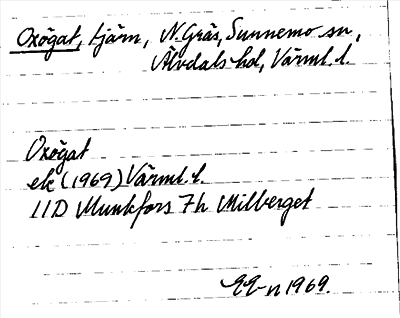 Oxögat, tjärn, N. Gräs, Sunnemo sn,
Älvdals hd, Värml. l.
Oxögat
ek (1969) Värml. l.
11D Munkfors 7h Milberget
1969.